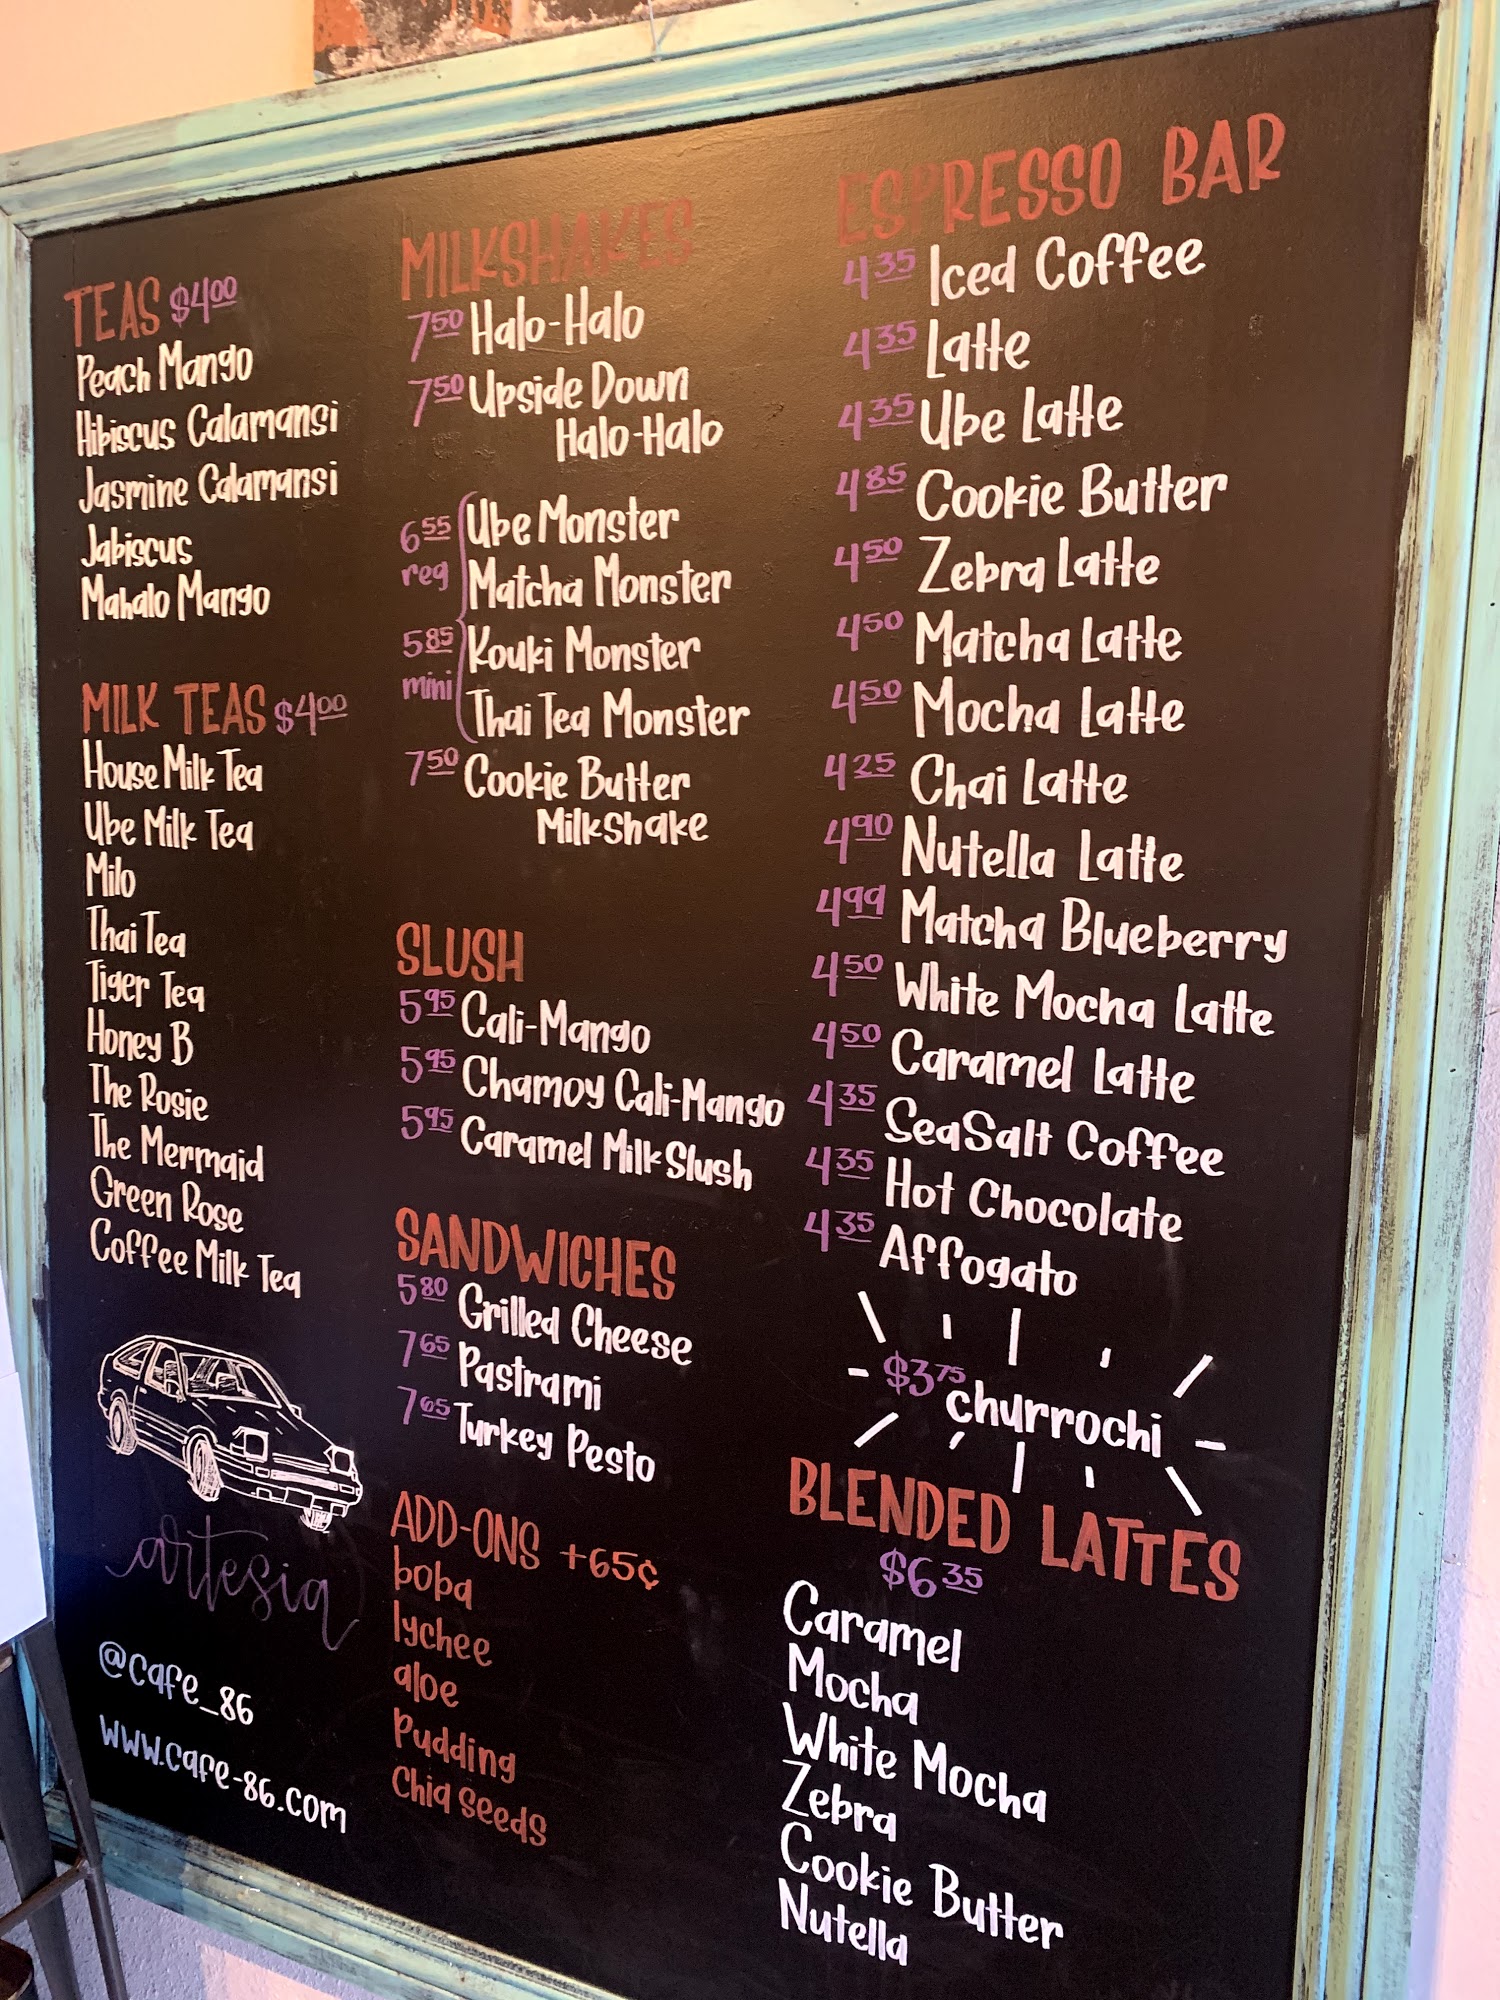 TEAS $4.00
Peach Mango
Hibiscus Calamansi
Jasmine Calamansi
Jabiscus
Mahalo Mango
MILK TEAS $4.00
House Milk Tea
Ube Milk Tea
Milo
Thai Tea
Tiger Tea
Honey B
The Rosie
The Mermaid
Green Rose
Coffee Milk Tea
artesia
@cafe_86
www.cafe-86.com
MILKSHAKES
7.50 Halo-Halo
7.50 Upside Down
Halo-Halo
6.55 Ube Monster
reg Matcha Monster
5.85 Kouki Monster
mini Thai Tea Monster
7.50 Cookie Butter
Milkshake
SLUSH
5.95 Cali-Mango
5.95 Chamoy Cali-Mango
5.95 Caramel Milk Slush
SANDWICHES
5.80 Grilled Cheese
7.65 Pastrami
7.65 Turkey Pesto
ADD-ONS +65¢
boba
lychee
aloe
Pudding
Chia seeds
ESPRESSO BAR
4.35 Iced Coffee
4.35 Latte
4.35 Ube Latte
4.85 Cookie Butter
4.50 Zebra Latte
4.50 Matcha Latte
4.50 Mocha Latte
4.25 Chai Latte
4.90 Nutella Latte
4.99 Matcha Blueberry
4.50 White Mocha Latte
4.50 Caramel Latte
4.35 SeaSalt Coffee
4.35 Hot Chocolate
4.35 Affogato
$3.75 churrochi
BLENDED LATTES
$6.35
Caramel
Mocha
White Mocha
Zebra
Cookie Butter
Nutella